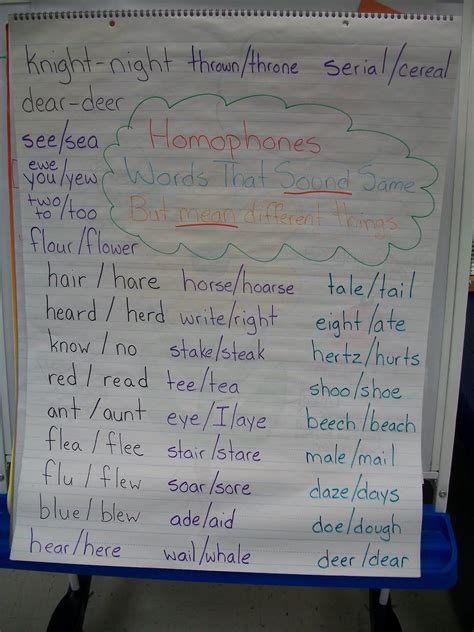 knight-night thrown/throne serial/cereal
dear-deer
Homophones
Words That Sound Same
But mean different things
see/sea
ewe
you/yew
two
to/too
flour/flower
hair / hare horse/hoarse tale/tail
heard / herd write/right eight/ate
know / no stake/steak hertz/hurts
red / read tee/tea shoo/shoe
ant / aunt eye/I/aye beech/beach
flea / flee stair/stare male/mail
flu / flew soar/sore daze/days
blue/ blew ade/aid doe/dough
hear/here wail/whale deer/dear